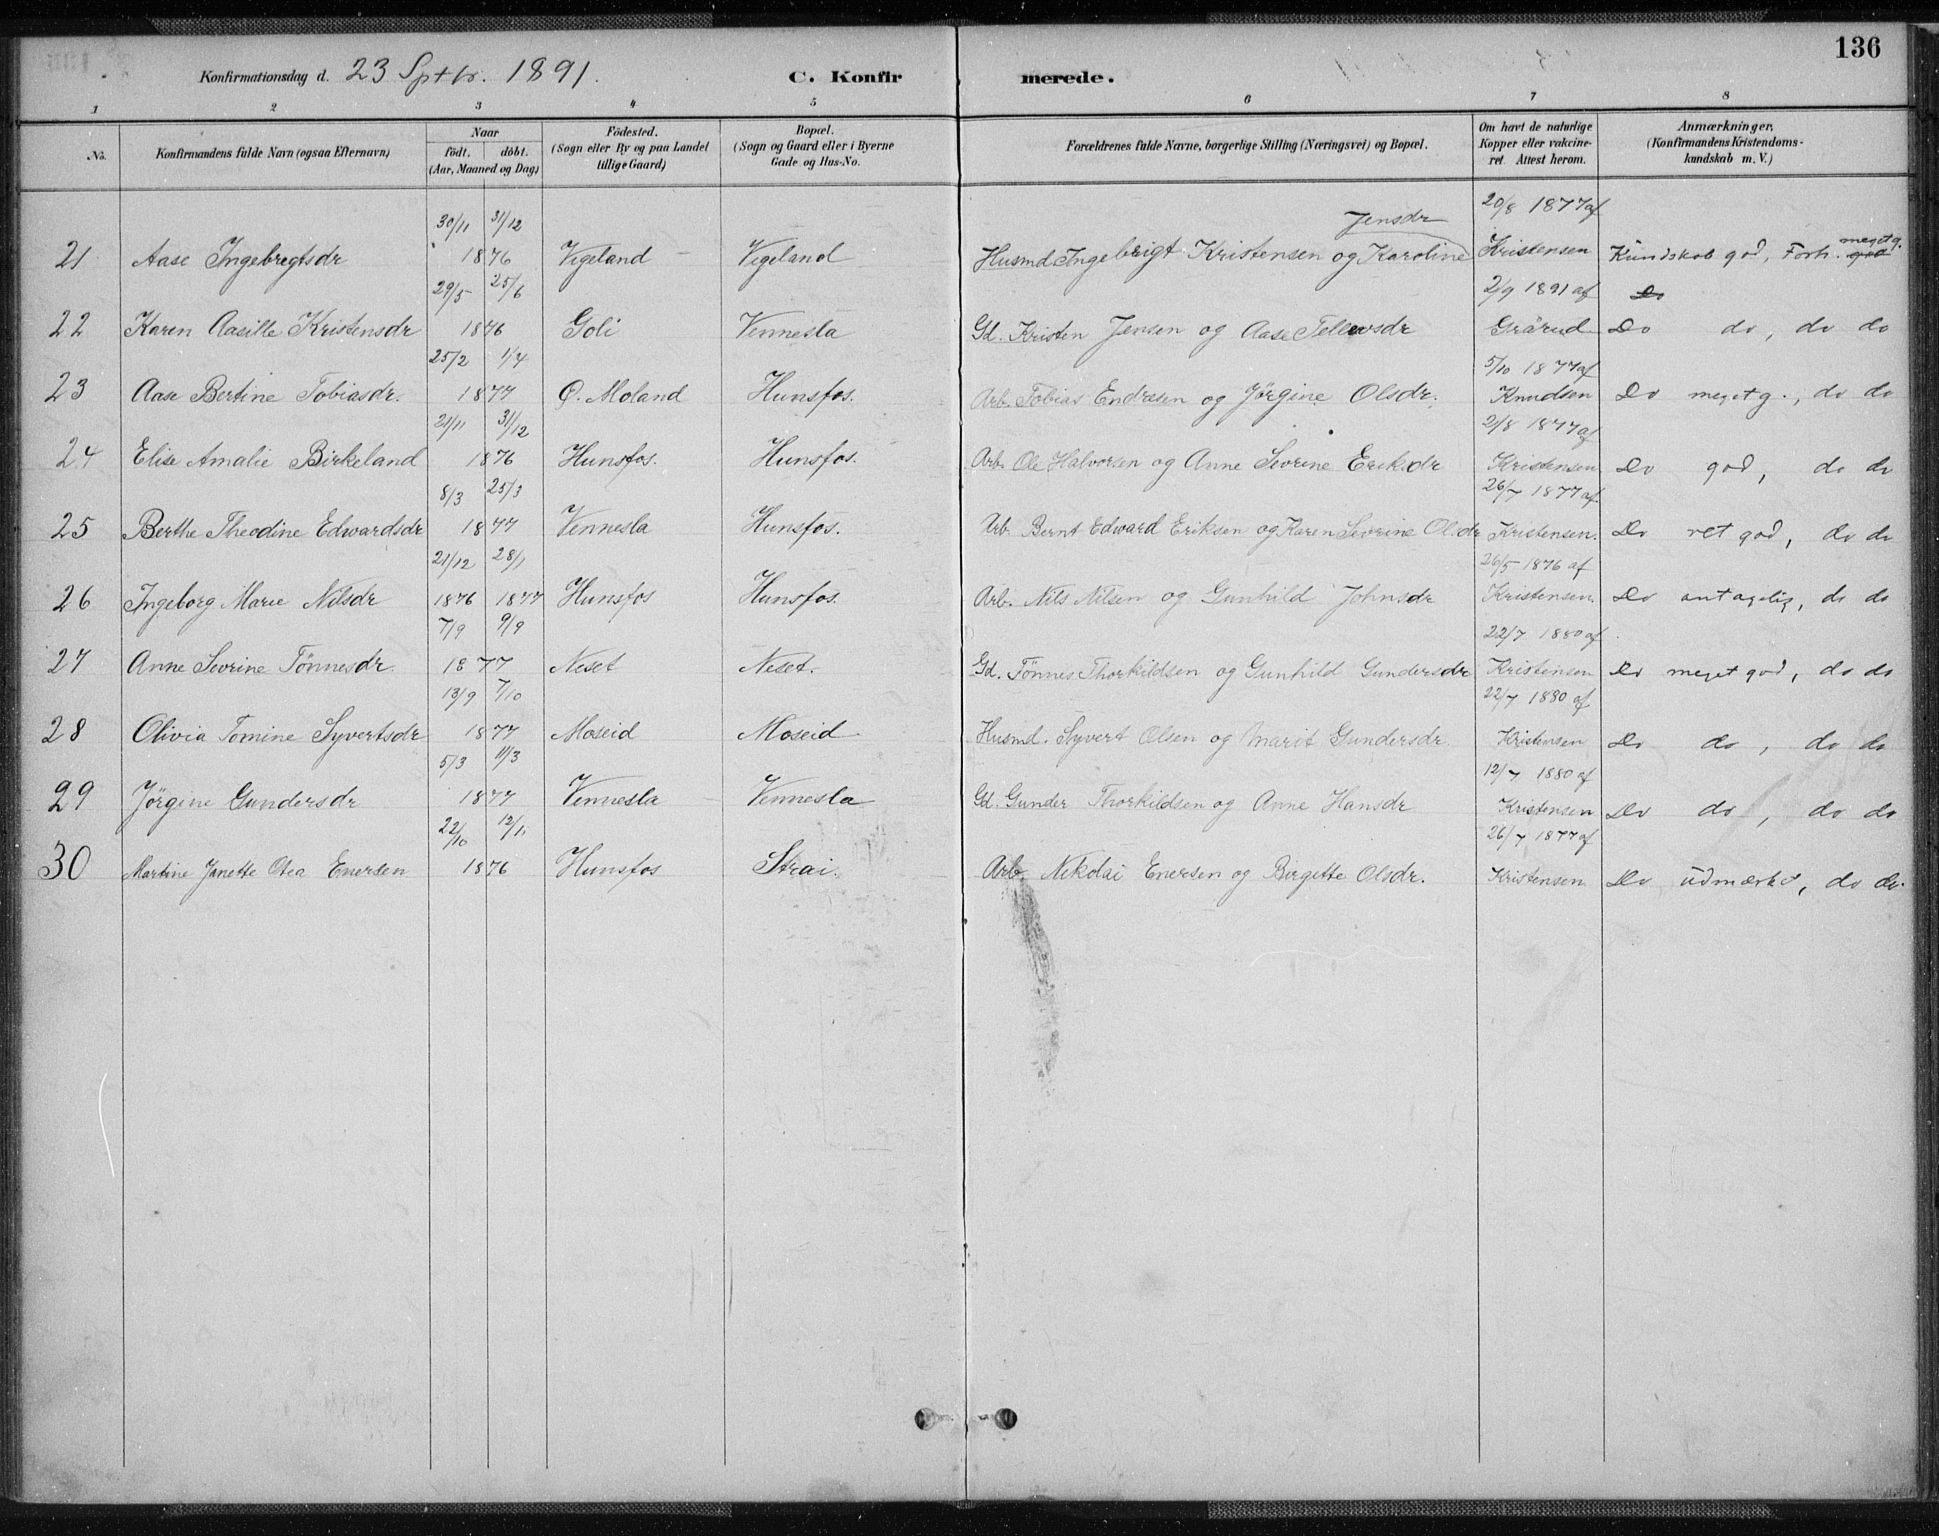 136
Konfirmationsdag d. 23 Sptbr. 1891. C. Konfirmerede.
1 2 3 4 5 6 7 8
No. Konfirmandens fulde Navn (ogsaa Efternavn) Naar födt. döbt. (Aar, Maaned og Dag) Födested. (Sogn eller By og paa Landet tillige Gaard) Bopæl. (Sogn og Gaard eller i Byerne Gade og Hus-No. Forældrenes fulde Navne, borgerlige Stilling (Næringsvei) og Bopæl. Om havt de naturlige Kopper eller vakcineret. Attest herom. Anmærkninger, (Konfirmandens Kristendomskundskab m. V.)
30/11 31/12 Jensdr 20/8 1877 af
21 Aase Ingebregtsdr 1876 Vigeland Vegeland Husmd Ingebrigt Kristensen og Karoline Kristensen Kundskab god, Forh. god meget g.
29/5 25/6 2/9 1891 af Do
22 Karen Aasille Kristensdr 1876 Goli Vennesla Gd. Kristen Jensen og Aase Tellevsdr Grărud Do do, do do
25/2 1/4 5/10 1877 af
23 Aase Bertine Tobiasdr. 1877 Ø. Moland Hunsfos. Arb. Tobias Endresen og Jörgine Olsdr. Knudsen Do meget g., do do
21/11 31/12 2/8 1877 af
24 Elise Amalie Birkeland 1876 Hunsfos. Hunsfos. Arb. Ole Halvorsen og Anne Sevrine Erik.dr Kristensen Do god, do do
8/3 25/3 26/7 1877 af
25 Berthe Theodine Edwardsdr 1877 Vennesla Hunsfos. Arb. Bernt Edward Eriksen og Karen Sevrine Ol.dr Kristensen. Do ret god, do do
21/12 28/1 26/5 1876 af
26 Ingeborg Marie Nilsdr 1876 1877 Hunsfos Hunsfos. Arb. Nils Nilsen og Gunhild Johnsdr Kristensen. Do antagelig, do do
7/9 9/9 22/7 1880 af
27 Anne Sevrine Tönnesdr. 1877 Neset Neset. Gd. Tönnes Thorkildsen og Gunhild Gundersdr Kristensen Do meget god, do do
13/9 7/10 22/7 1880 af
28 Olivia Tomine Syvertsdr 1877 Moseid Moseid Husmd. Syvert Olsen og Marit Gundersdr Kristensen Do do, do do
5/3 11/3 12/7 1880 af
29 Jörgine Gundersdr 1877 Vennesla Vennesla Gd. Gunder Thorkildsen og Anne Hansdr Kristensen Do do, do do
22/10 12/11 26/7 1877 af
30 Martine Janette Otea Enersen 1876 Hunsfos Strai. Arb. Nikolai Enersen og Birgette Olsdr. Kristensen Do udmærket, do do.